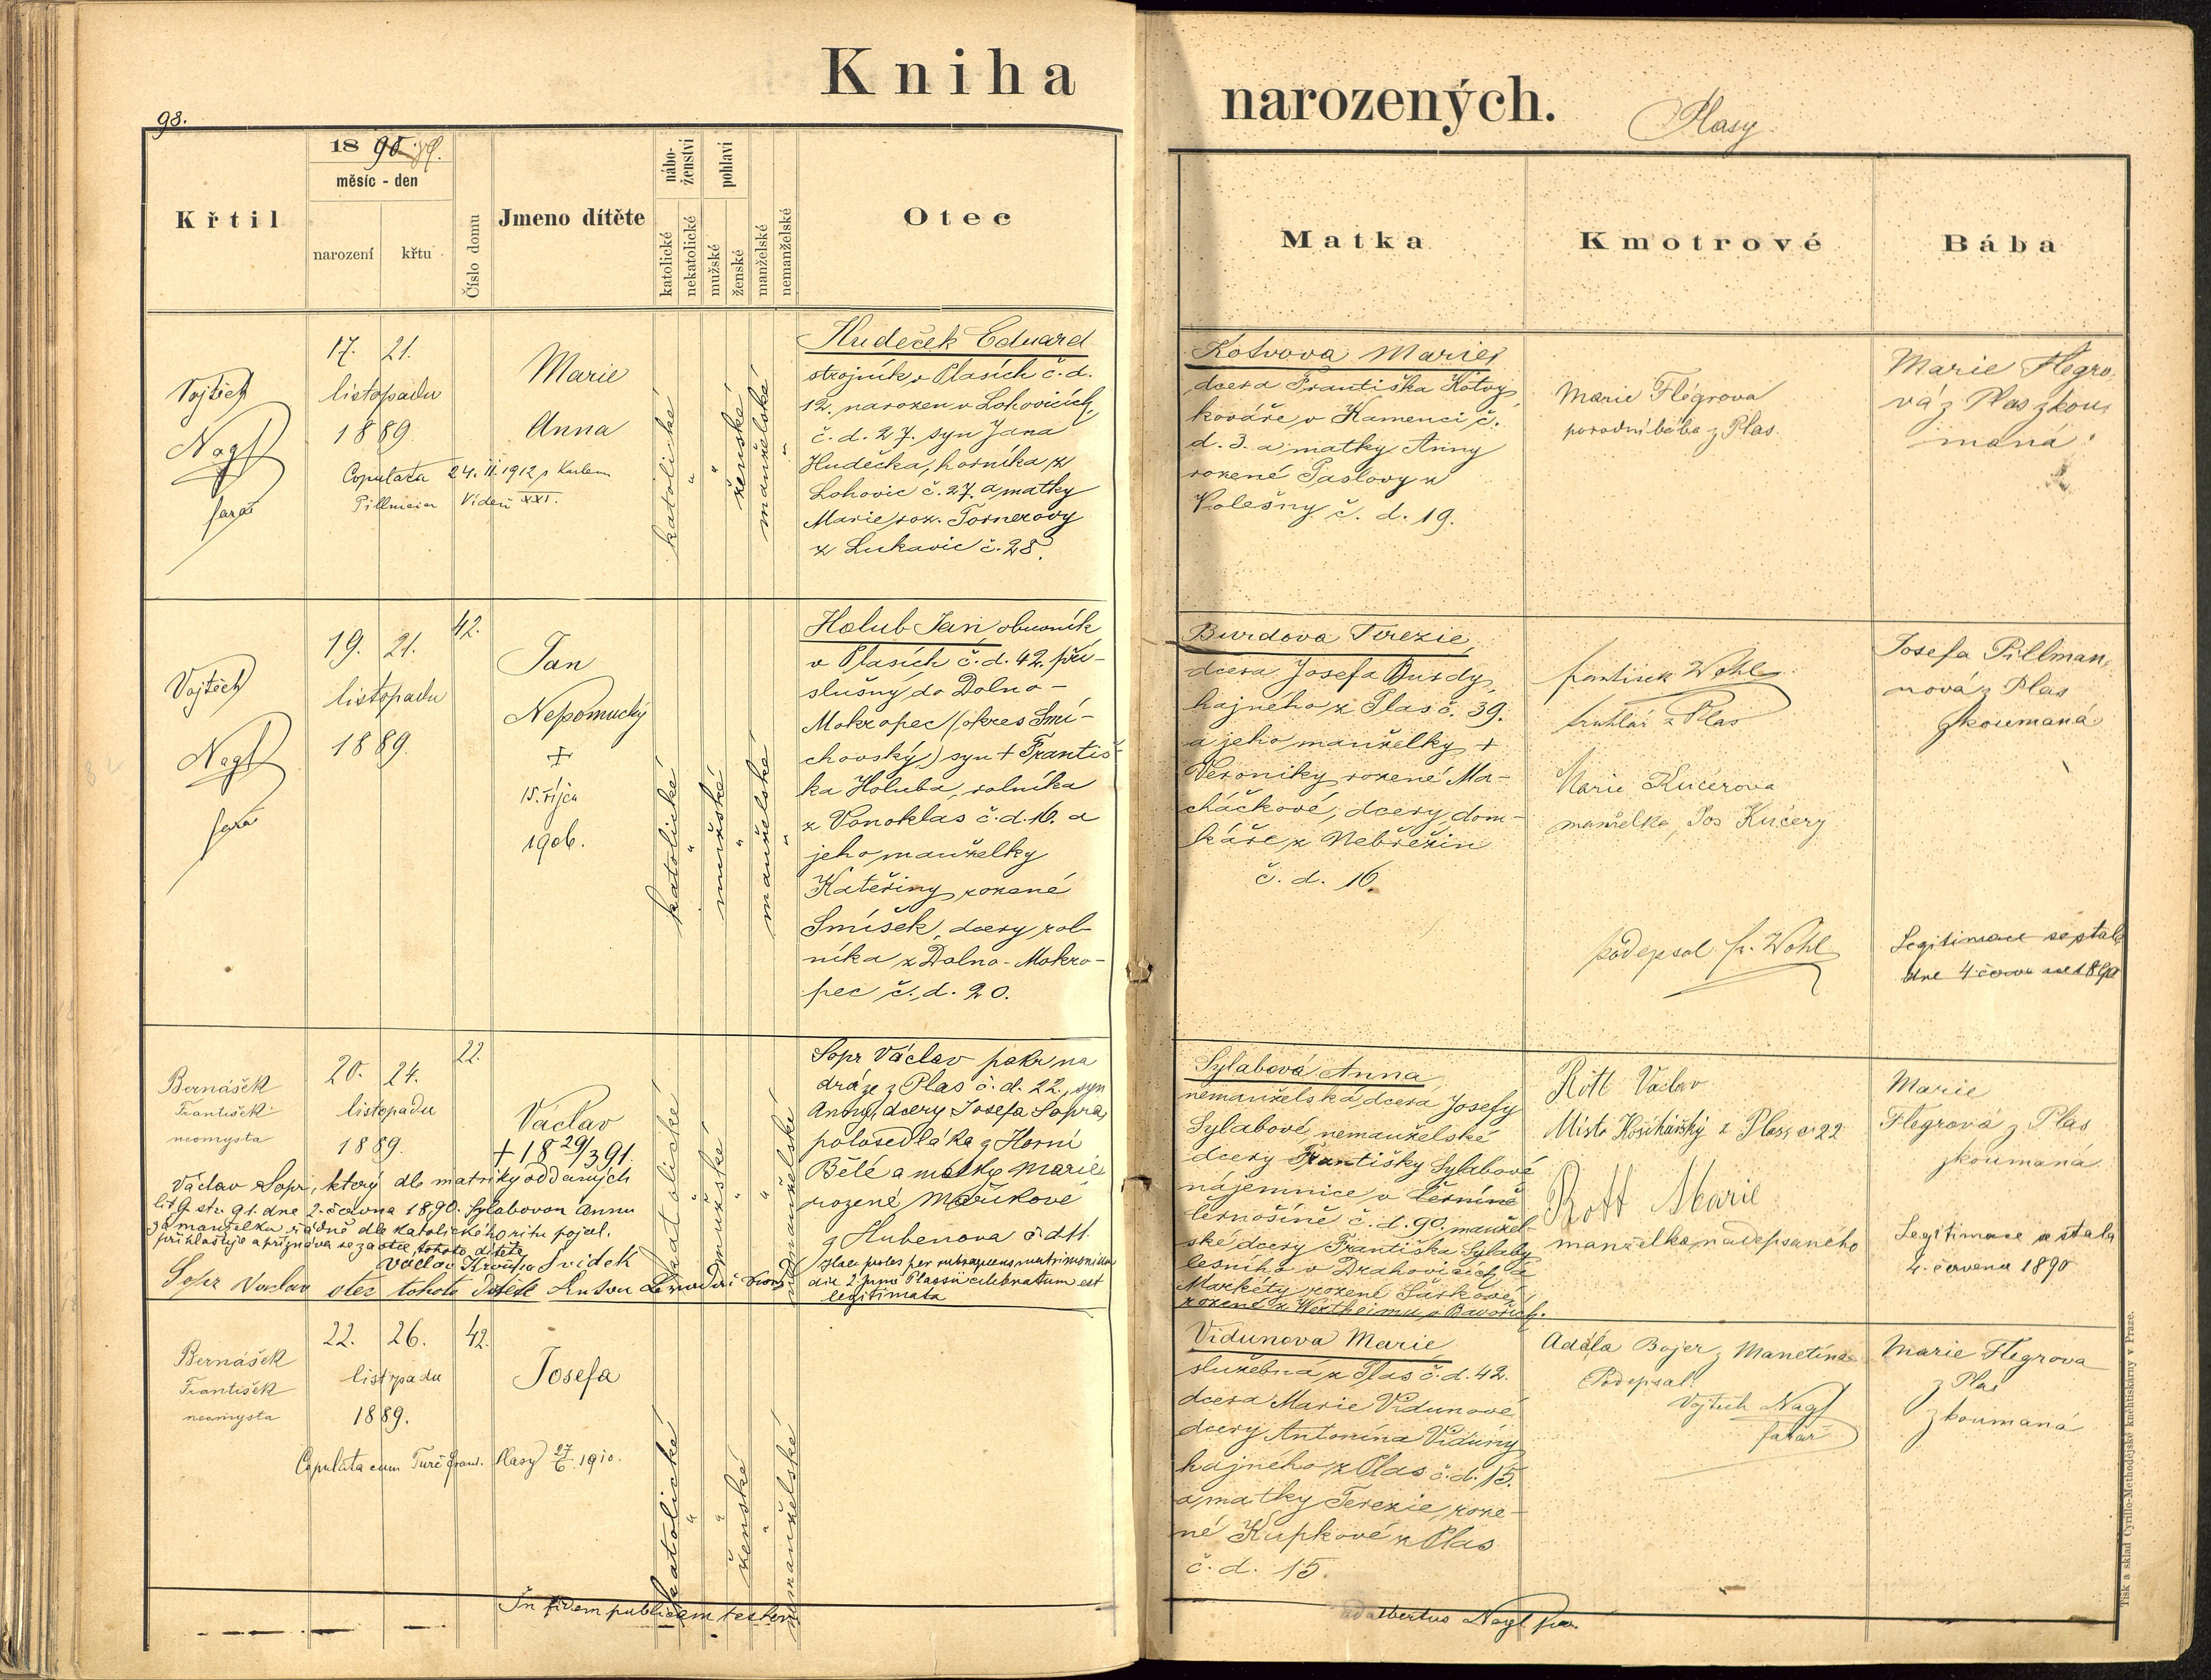 Kniha
narozených.
Plasy
98.
Křtil
1890.89.
měsíc - den
narození
křtu
Číslo domu
Jmeno dítěte
nábo-
ženství
katolické
nekatolické
pohlaví
mužské
ženské
manželské
nemanželské
Otec
Matka
Kmotrové
Bába
Vojtěch
Nagl
farář
17. 21.
listopadu
1889.
Copulata 24.II.1912 s Karlem
Pillmeier Vídeň XXI.
Marie
Anna
katolické
"
"
ženské
manželské
"
Hudeček Eduard
strojník v Plasích č. d.
12. narozen v Lohovicích
č. d. 27. syn Jana
Hudečka, horníka z
Lohovic č. 27. a matky
Marie roz. Tornerovy
z Lukavic č. 28.
Kotvova Marie,
dcera Františka Kotvy,
kováře v Kamenci č.
d. 3. a matky Anny
rozené Paslovy z
Volešny č. d. 19.
Marie Flégrova
porodní bába z Plas.
Marie Flegro-
vá z Plas zkou-
maná.
Vojtěch
Nagl
farář
19. 21.
listopadu
1889.
42.
Jan
Nepomucký
+
15. říjca
1906.
katolické
"
mužské
"
manželské
"
Holub Jan, obuvník
v Plasích č. d. 42. pří-
slušný do Dolno-
Mokropec (okres Smí-
chovský) syn + Františ-
ka Holuba, rolníka
z Vonoklas č. d. 16. a
jeho manželky
Kateřiny rozené
Smíšek, dcery rol-
níka z Dolno-Mokro-
pec č. d. 20.
Burdova Terezie,
dcera Josefa Burdy,
hajného z Plas č. 39.
a jeho manželky +
Veroniky rozené Ma-
cháčkové, dcery dom-
káře z Nebřezin
č. d. 16.
František Wohl
truhlář z Plas
Marie Kučerova
manželka Jos Kučery
podepsal fr. Wohl
Josefa Pillman-
nová z Plas
zkoumaná
Legitimace se stala
dne 4 června 1890
Bernášek
František
neomysta
20. 24.
listopadu
1889.
22.
Václav
+ 18 29/3 91.
katolické
"
mužské
"
"
nemanželské
Sopr Václav pakr na
dráze z Plas č. d. 22., syn
Anny, dcery Josefa Sopra,
polosedláka z Horní
Bělé a matky Marie
rozené Maříkové
z Hubenova č d 11.
Haec proles per subsequens matrimonium
die 2 junii Plassii celebratum est
legitimata
Václav Sopr, který dle matriky oddaných
lit G. str. 91. dne 2. června 1890. Sylabovou Annu
za manželku řádně dle katolického ritu pojal,
přihlašuje a přiznává se za otce tohoto dítěte
Václav Svidek
Sopr Vaclav otec tohoto dítěte
Sylabová Anna,
nemanželská dcera Josefy
Sylabové, nemanželské
dcery Františky Sylabové
nájemnice v
Černošíně č. d. 90. manžel-
ské dcery Františka Sylaby
lesního v Drahovicích a
Markéty rozené Šáškové,
rozené z Wertheimu v Bavořích.
Rott Václav
z Plas č 22
Rott Marie
manželka nadepsaného
Marie
Flegrová z Plas
zkoumaná
Legitimace se stala
4. června 1890
Bernášek
František
neomysta
22. 26.
listopadu
1889.
42.
Josefa
Copulata cum Turč Franc. Plasy 27/6. 1910.
katolické
"
"
ženské
"
nemanželské
Vidunova Marie
služebná z Plas č. d. 42.
dcera Marie Vidunové,
dcery Antonína Viduny,
hajného z Plas č. d. 15.
a matky Terezie, roze-
né Kupkové z Plas
č. d. 15.
Adéla Bojer z Manetína
Podepsal:
Vojtěch Nagl
farář
Marie Flegrova
z Plas
zkoumaná
In fidem publicam testor
Adalbertus Nagl par.
Tisk a sklad Cyrillo-Methodějské knihtiskárny v Praze.